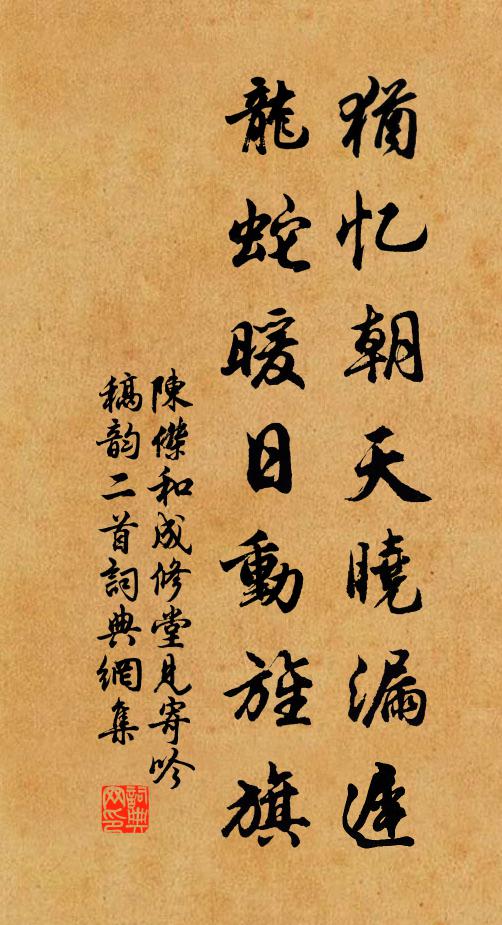 猶忆朝天曉漏遲
龍蛇暖日動旌旗
陳傑和成修堂見寄吟
稿韵二首詞典網集
詞典网印